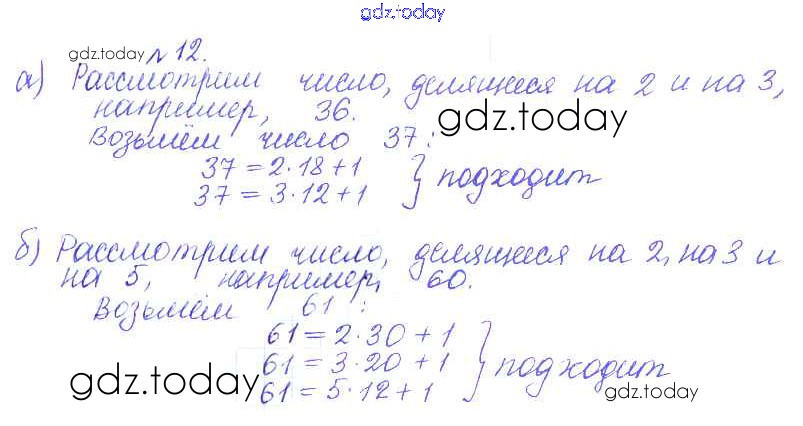 gdz.today
gdz.today № 12.
а) Рассмотрим число, делящееся на 2 и на 3,
например, 36.
gdz.today
Возьмём число 37:
37 = 2·18+1
37 = 3·12+1 } подходит
б) Рассмотрим число, делящееся на 2, на 3 и
на 5, например, 60.
Возьмём 61 :
61 = 2·30 + 1
61 = 3·20 + 1 } подходит
61 = 5·12 + 1
gdz.today
gdz.today